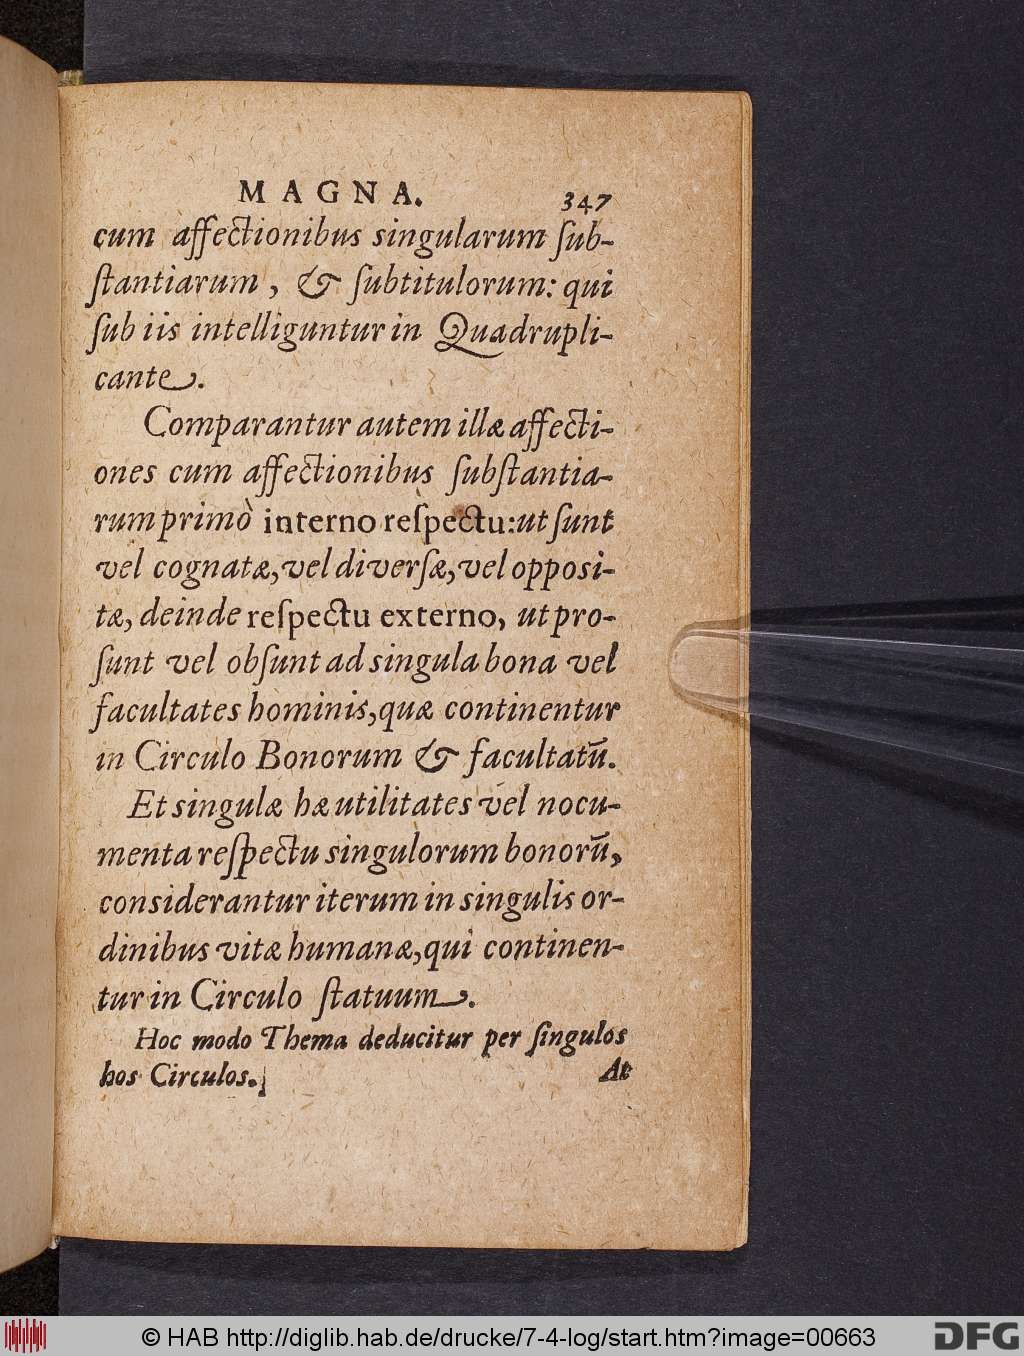 MAGNA. 347
cum affectionibus singularum ſub-
ſtantiarum, & ſubtitulorum: qui
ſub iis intelliguntur in Quadrupli-
cante.
Comparantur autem illæ affecti-
ones cum affectionibus ſubſtantia-
rum primò interno reſpectu: ut ſunt
vel cognatæ, vel diverſæ, vel opposi-
tæ, deinde reſpectu externo, ut pro-
ſunt vel obſunt ad singula bona vel
facultates hominis, quæ continentur
in Circulo Bonorum & facultatū.
Et singulæ hæ utilitates vel nocu-
menta reſpectu singulorum bonorū,
considerantur iterum in singulis or-
dinibus vitæ humanæ, qui continen-
tur in Circulo ſtatuum.
Hoc modo Thema deducitur per ſingulos
hos Circulos.
At
© HAB http://diglib.hab.de/drucke/7-4-log/start.htm?image=00663
DFG